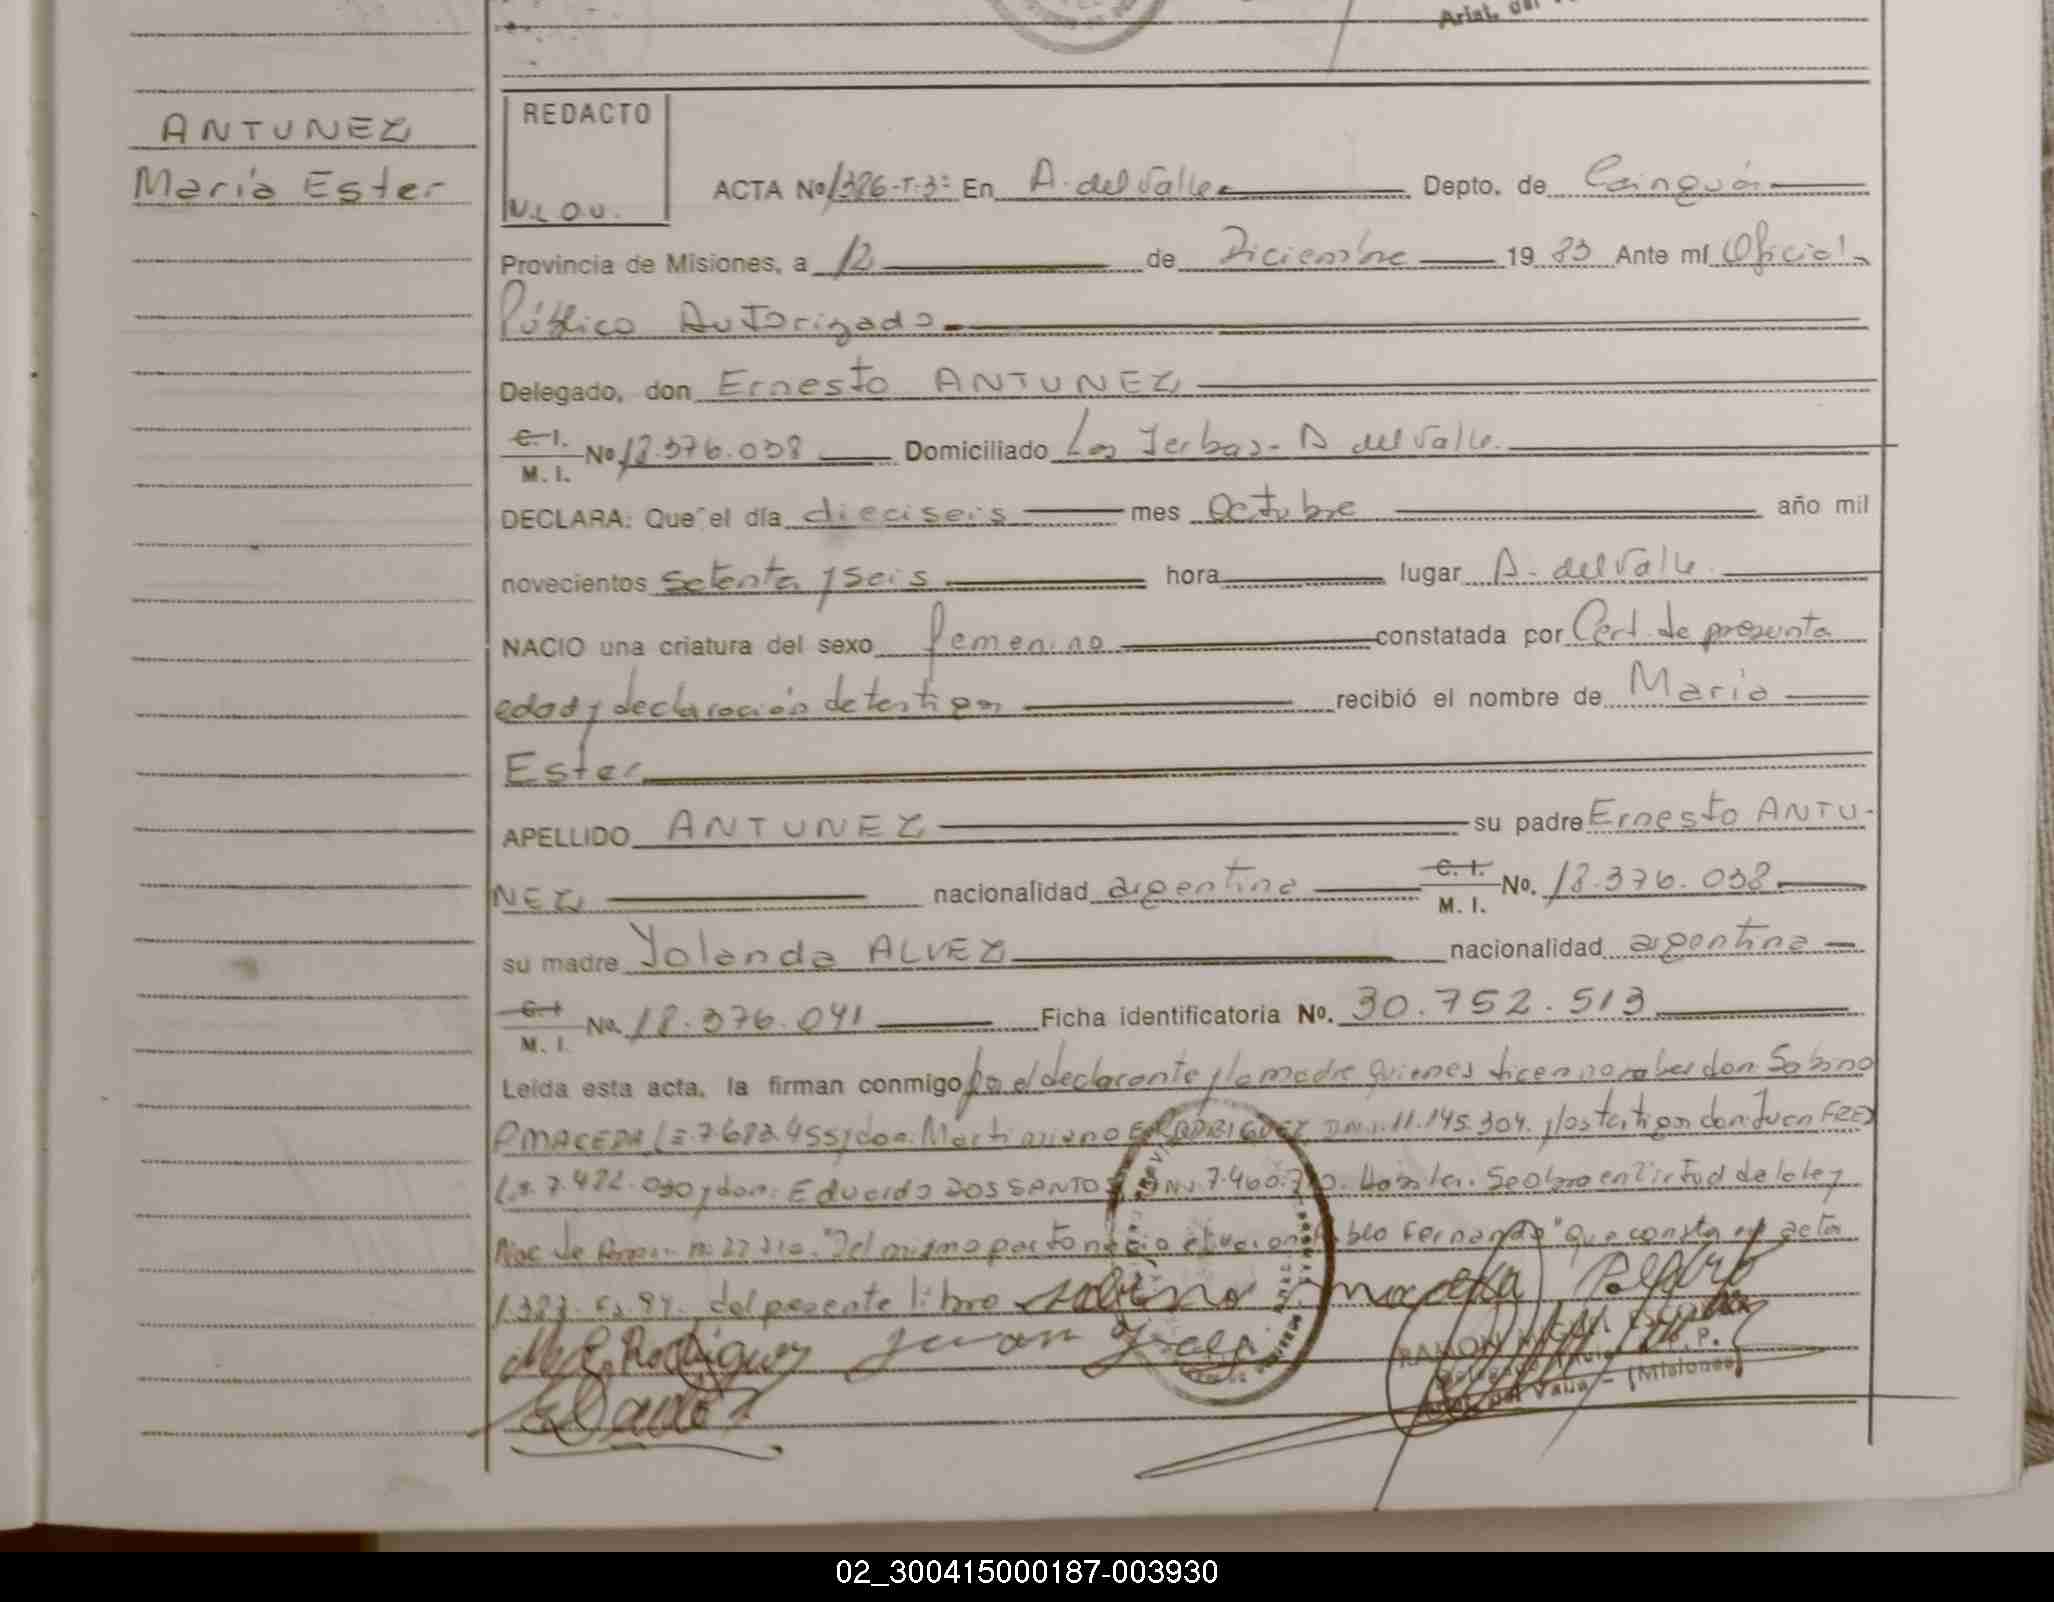 ANTUNEZ
María Ester
REDACTO
ACTA Nº 1326-T-3º En A. del Valle Depto. de Cainguás
Provincia de Misiones, a 12 de Diciembre 19 83 Ante mí Oficial
Público Autorizado
Delegado, don Ernesto ANTUNEZ
C. I.
M. I.
Nº 18.376.038 Domiciliado Las Yerbas - A del Valle.
DECLARA: Que el día dieciseis mes Octubre año mil
novecientos setenta y seis hora lugar A. del Valle.
NACIO una criatura del sexo femenino constatada por Cert. de presunta
edad y declaración de testigos recibió el nombre de María
Ester
APELLIDO ANTUNEZ su padre Ernesto ANTU-
NEZ nacionalidad argentina C. I. M. I. No. 18.376.038
su madre Yolanda ALVEZ nacionalidad argentina
C. I.
M. I.
No. 18.376.041 Ficha identificatoria Nº. 30.752.513
Leída esta acta, la firman conmigo por el declarante y la madre quienes dicen no saber don Sabino
MACEDA y don Martiniano E. RODRIGUEZ DNI. 11.145.304. y los testigos don Juan
y don: Eduardo DOS SANTOS 7.460. Se labra en virtud de la ley
Nac. de "Del mismo parto nació el varón Pablo Fernando" que consta en acta
del presente libro
M. E. Rodriguez Juan
RAMON
(Misiones)
02_300415000187-003930